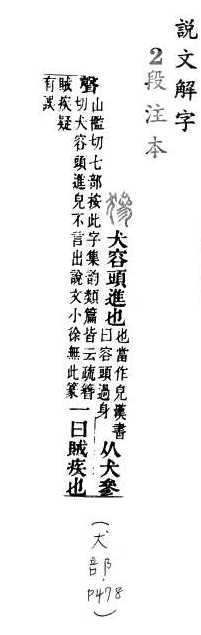 說文解字
2段注本
㺑犬容頭進也
也當作皃漢書
曰容頭過身
从犬參
聲
山檻切七部按此字集韵類篇皆云疏簪
切犬容頭進皃不言出說文小徐無此篆
一曰賊疾也
賊疾疑
有誤
（犬部.P478）